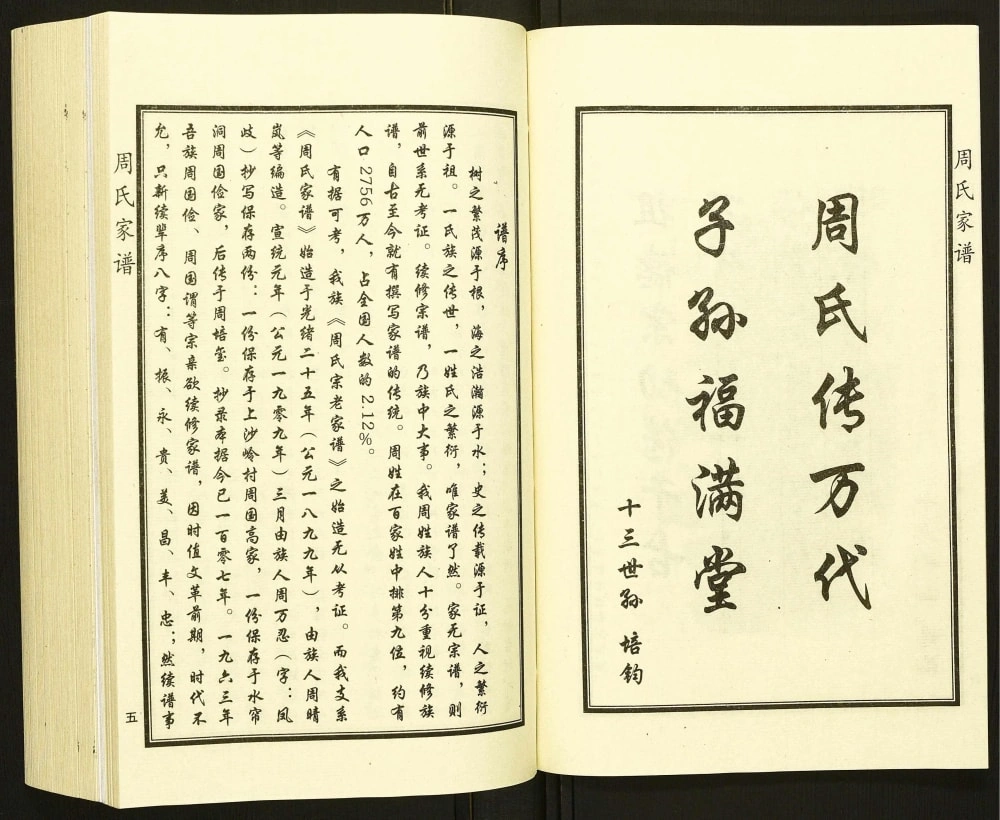 周氏家谱
周氏传万代
子孙福满堂
十三世孙 培钧
谱序
树之繁茂源于根，海之浩瀚源于水；史之传载源于证，人之繁衍
源于祖。一氏族之传世，一姓氏之繁衍，唯家谱了然。家无宗谱，则
前世系无考证。续修宗谱，乃族中大事。我周姓族人十分重视续修族
谱，自古至今就有撰写家谱的传统。周姓在百家姓中排第九位，约有
人口2756万人，占全国人数的2.12%。
有据可考，我族《周氏宗老家谱》之始造无从考证。而我支系
《周氏家谱》始造于光绪二十五年（公元一八九九年），由族人周晴
岚等编造。宣统元年（公元一九零九年）三月由族人周万忍（字：凤
岐）抄写保存两份：一份保存于上沙岭村周国高家，一份保存于水帘
洞周国俭家，后传于周培玺。抄录本据今已一百零七年。一九六三年
吾族周国俭、周国谓等宗亲欲续修家谱，因时值文革前期，时代不
允，只新续辈序八字：有、振、永、贵、美、昌、丰、忠；然续谱事
周氏家谱
五